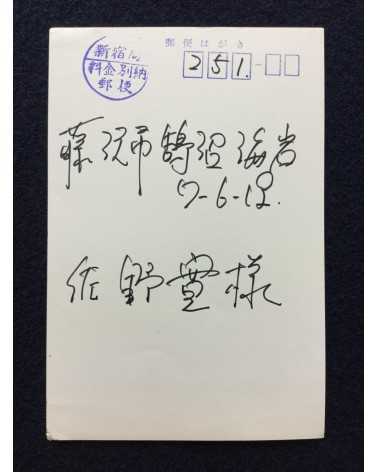 新宿局
料金別納
郵便
郵便はがき
251.-
藤沢市鵠沼海岸
7-6-18.
佐野寛様